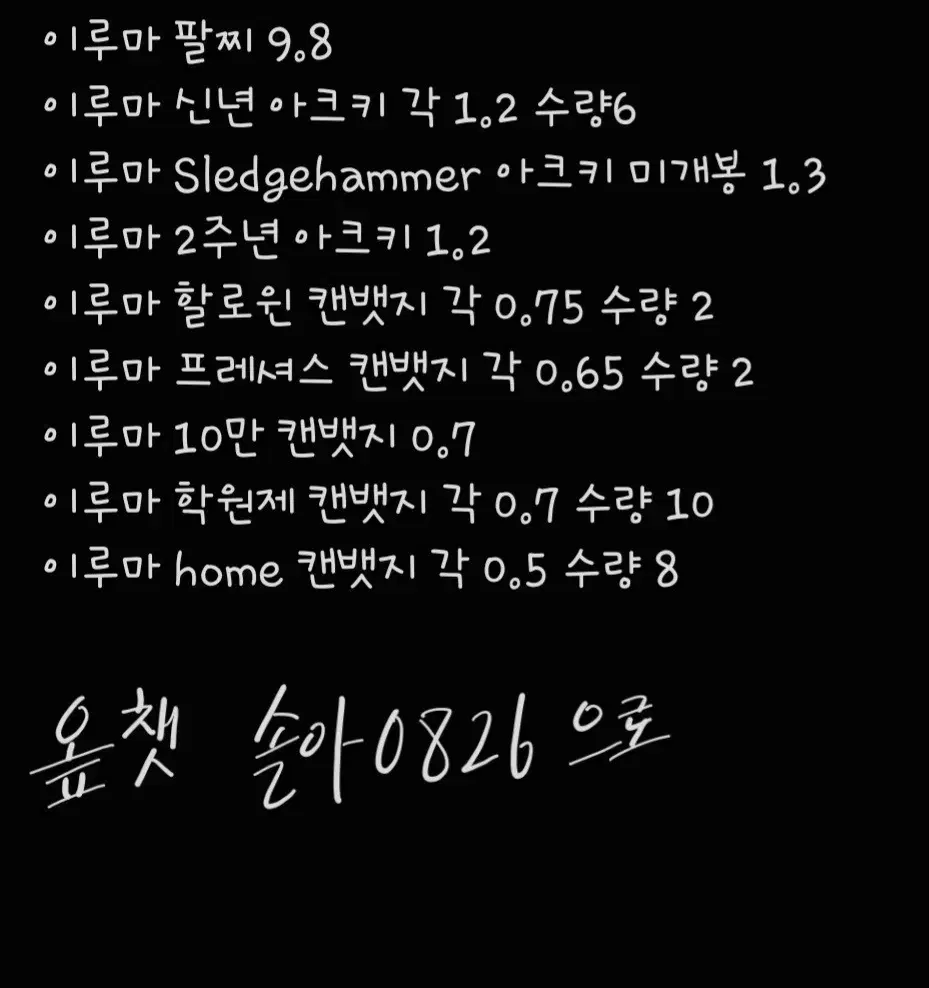 이루마 팔찌 9.8
이루마 신년 아크키 각 1.2 수량6
이루마 Sledgehammer 아크키 미개봉 1.3
이루마 2주년 아크키 1.2
이루마 할로윈 캔뱃지 각 0.75 수량 2
이루마 프레셔스 캔뱃지 각 0.65 수량 2
이루마 10만 캔뱃지 0.7
이루마 학원제 캔뱃지 각 0.7 수량 10
이루마 home 캔뱃지 각 0.5 수량 8
옾챗 솔아0826 으로